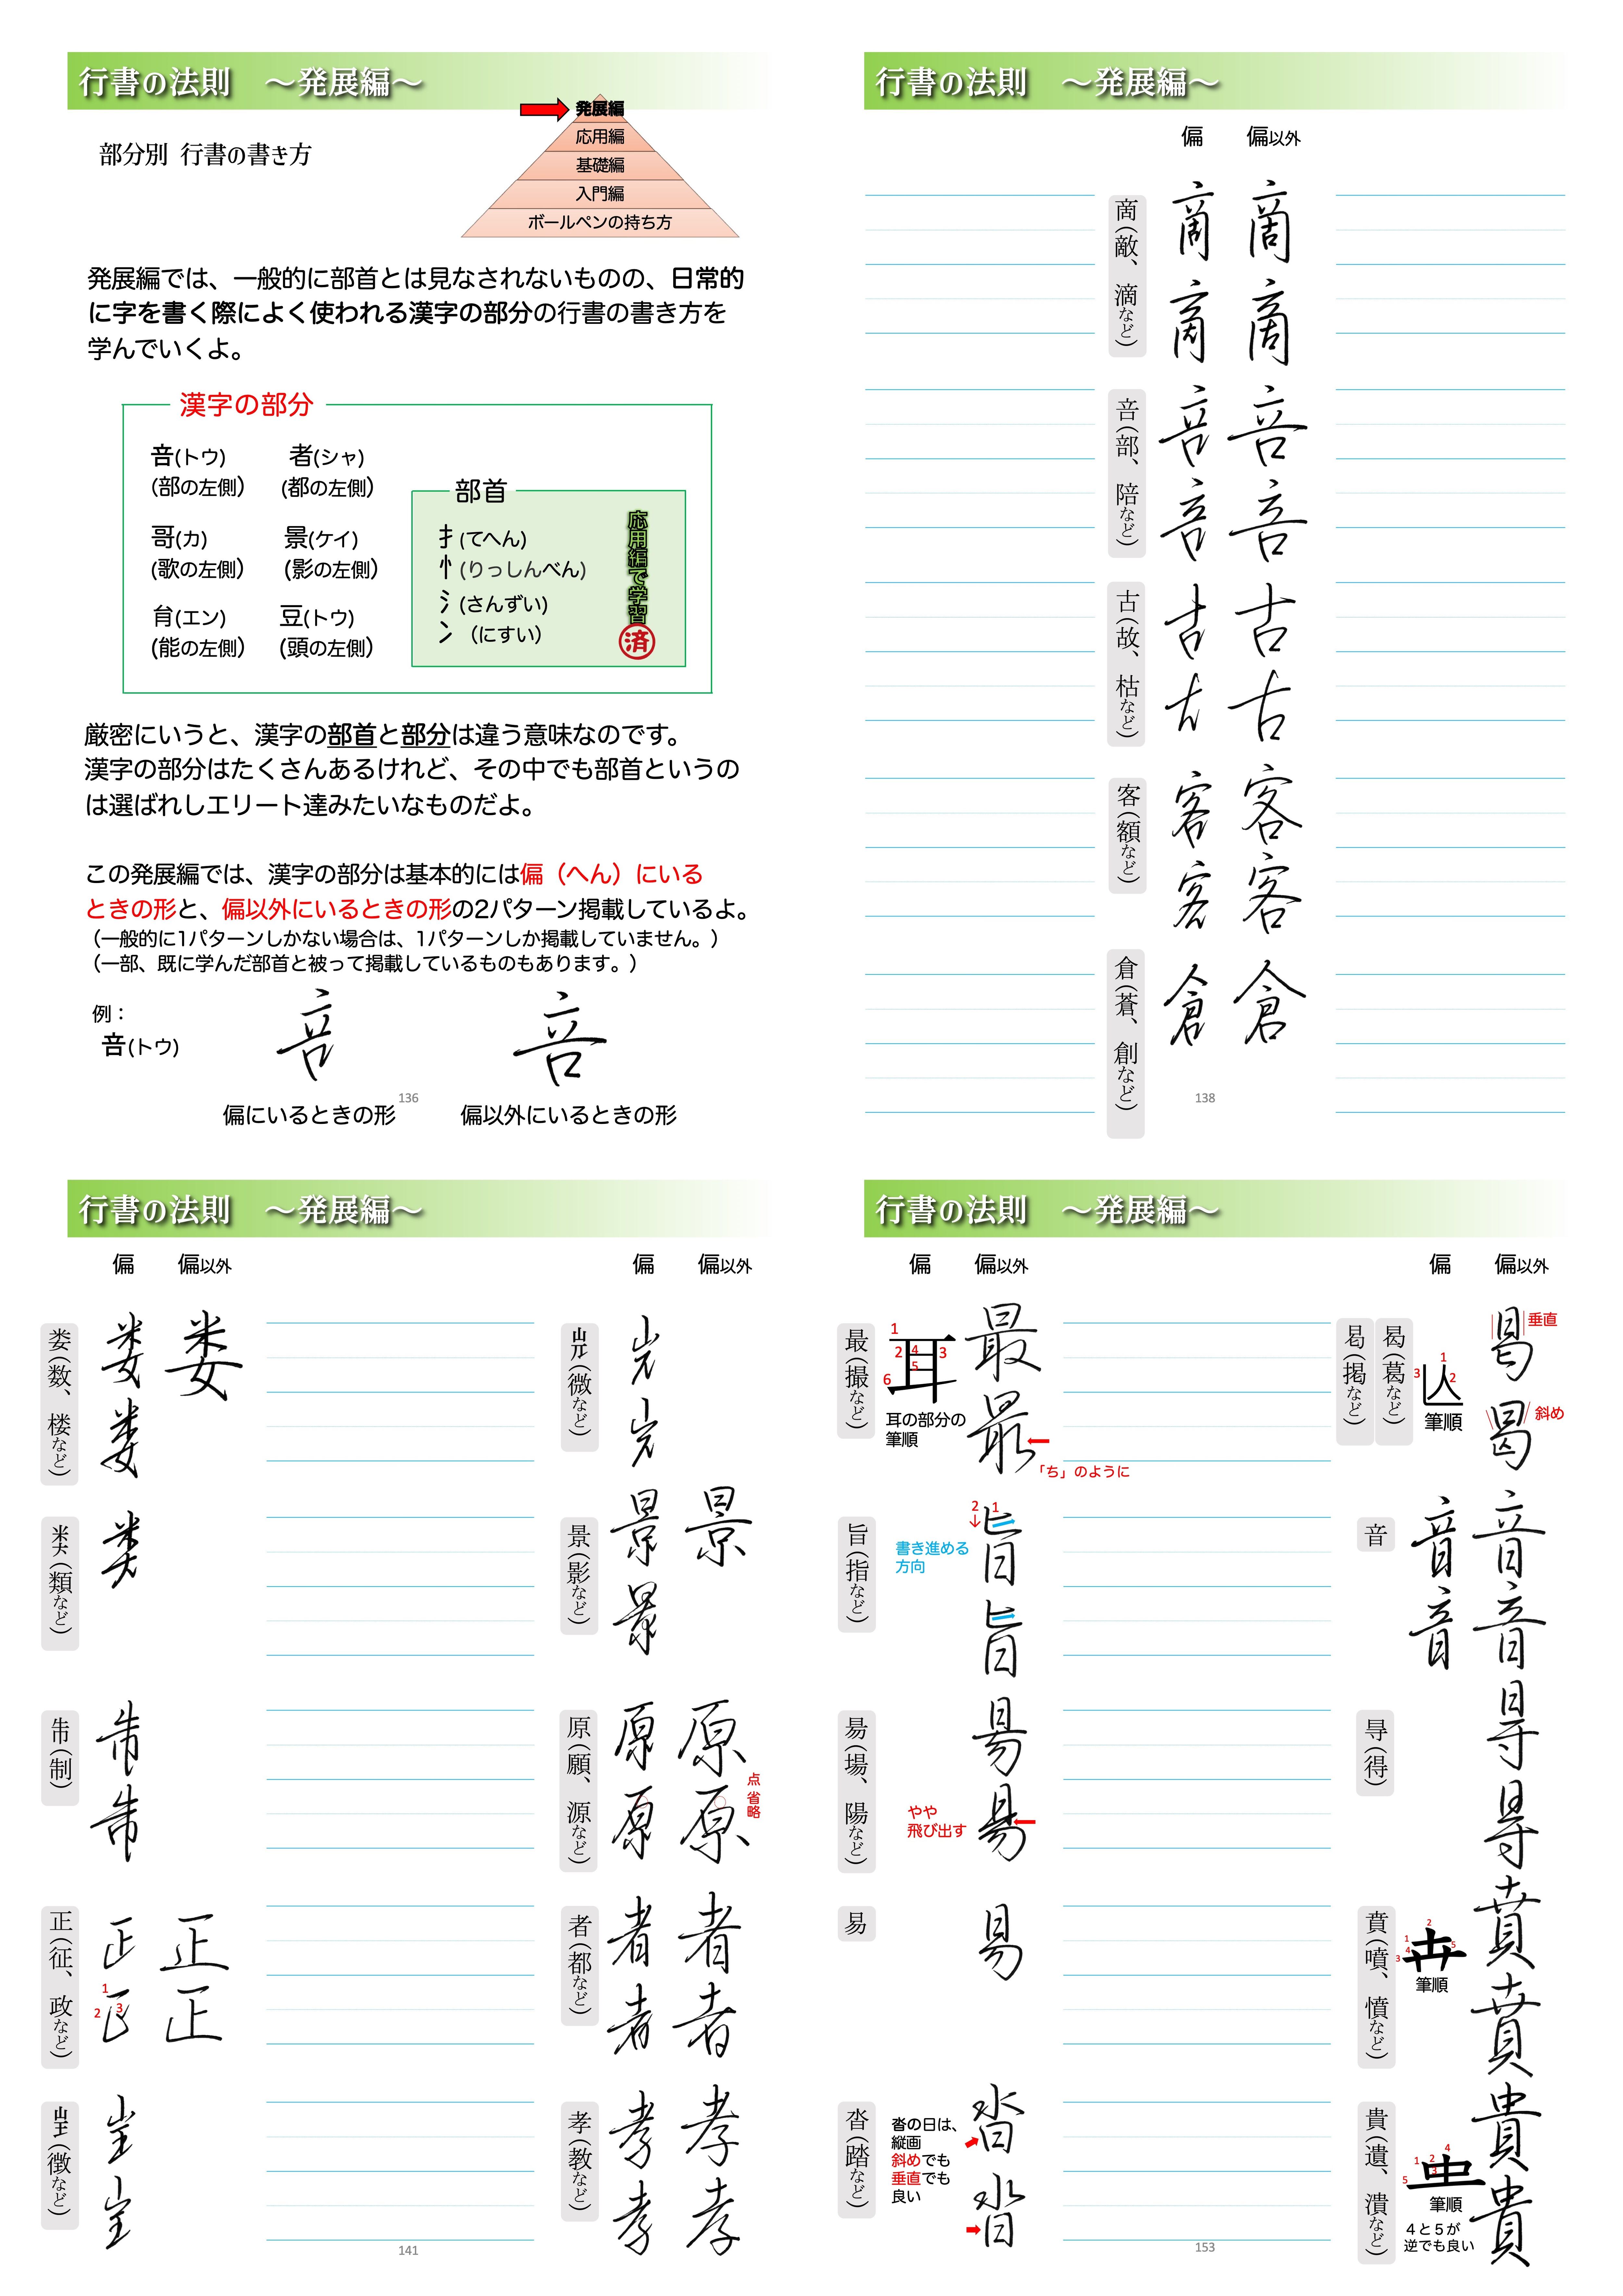 行書の法則 ～発展編～
部分別 行書の書き方
発展編
応用編
基礎編
入門編
ボールペンの持ち方
発展編では、一般的に部首とは見なされないものの、日常的
に字を書く際によく使われる漢字の部分の行書の書き方を
学んでいくよ。
漢字の部分
咅(トウ) 者(シャ)
(部の左側) (都の左側)
哥(カ) 景(ケイ)
(歌の左側) (影の左側)
䏍(エン) 豆(トウ)
(能の左側) (頭の左側)
部首
扌(てへん)
忄(りっしんべん)
氵(さんずい)
冫(にすい)
応用編で学習
済
厳密にいうと、漢字の部首と部分は違う意味なのです。
漢字の部分はたくさんあるけれど、その中でも部首というの
は選ばれしエリート達みたいなものだよ。
この発展編では、漢字の部分は基本的には偏（へん）にいる
ときの形と、偏以外にいるときの形の2パターン掲載しているよ。
（一般的に1パターンしかない場合は、1パターンしか掲載していません。）
（一部、既に学んだ部首と被って掲載しているものもあります。）
例：
咅(トウ)
咅 咅
偏にいるときの形 偏以外にいるときの形
136
行書の法則 ～発展編～
偏 偏以外
啇(敵、滴など)
啇 啇
啇 啇
咅(部、陪など)
咅 咅
咅 咅
古(故、枯など)
古 古
古 古
客(額など)
客 客
客 客
倉(蒼、創など)
倉 倉
138
行書の法則 ～発展編～
偏 偏以外
娄(数、楼など)
娄 娄
娄
类(類など)
类
制
正(征、政など)
正 正
1 2 3
正 正
(徴など)
偏 偏以外
(微など)
景(影など)
景 景
景
原(願、源など)
原 原
原 原
点省略
者(都など)
者 者
者 者
孝(教など)
孝 孝
孝 孝
141
行書の法則 ～発展編～
偏 偏以外
最(撮など)
1 2 3 4 5 6
耳
耳の部分の
筆順
最
最
「ち」のように
旨(指など)
書き進める
方向
2 1
旨
旨
昜(場、陽など)
昜
やや
飛び出す
昜
易
易
沓(踏など)
沓の日は、
縦画
斜めでも
垂直でも
良い
沓
沓
偏 偏以外
曷(葛など)
(掲など)
1 2 3
筆順
垂直
曷
斜め
音
音 音
音 音
㝵(得)
㝵
㝵
賁(噴、憤など)
1 2 3 4 5
筆順
賁
賁
貴(遺、潰など)
1 2 3 4 5
筆順
4と5が
逆でも良い
貴
貴
153